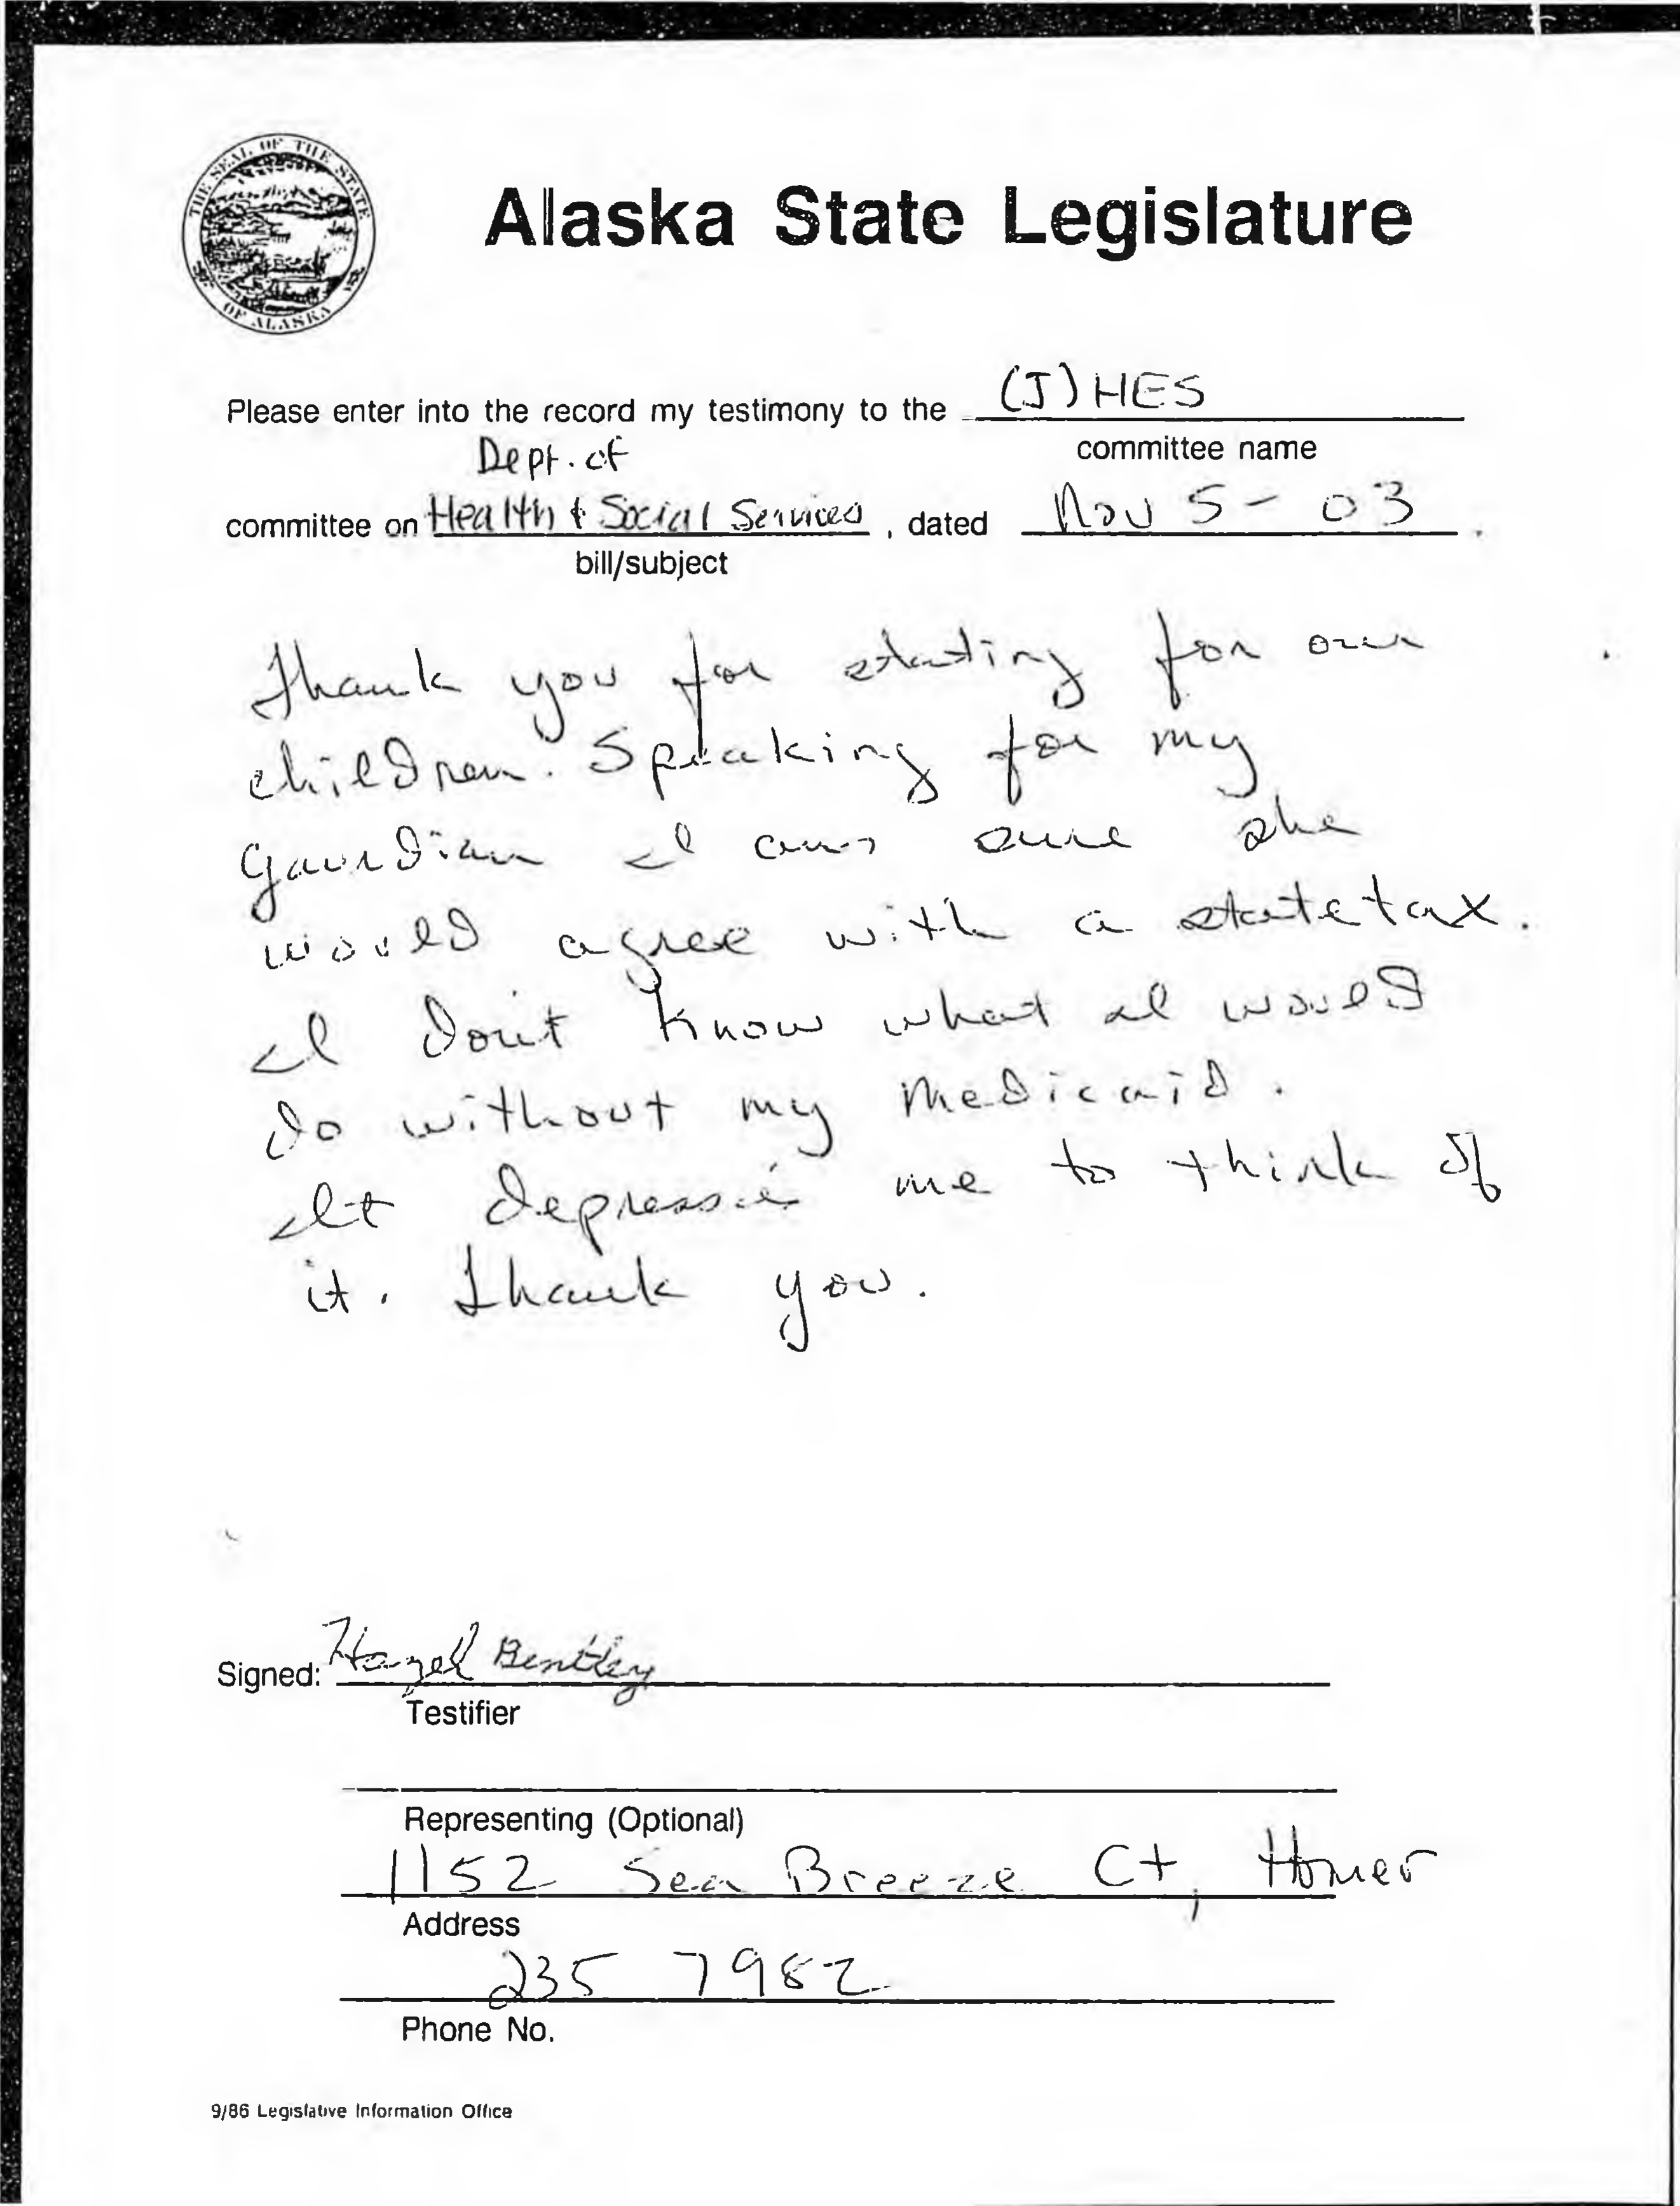 THE SEAL OF THE STATE OF ALASKA
Alaska State Legislature
Please enter into the record my testimony to the (J) HES
committee name
Dept. of
committee on Health & Social Services, dated Nov 5 - 03.
bill/subject
Thank you for stating for our
children. Speaking for my
gaurdian I am sure she
would agree with a state tax.
I don't know what I would
do without my Medicaid.
It depresses me to think of
it. Thank you.
Signed: Hazel Bentley
Testifier
Representing (Optional)
1152 Sea Breeze Ct, Homer
Address
235 7982
Phone No.
9/86 Legislative Information Office